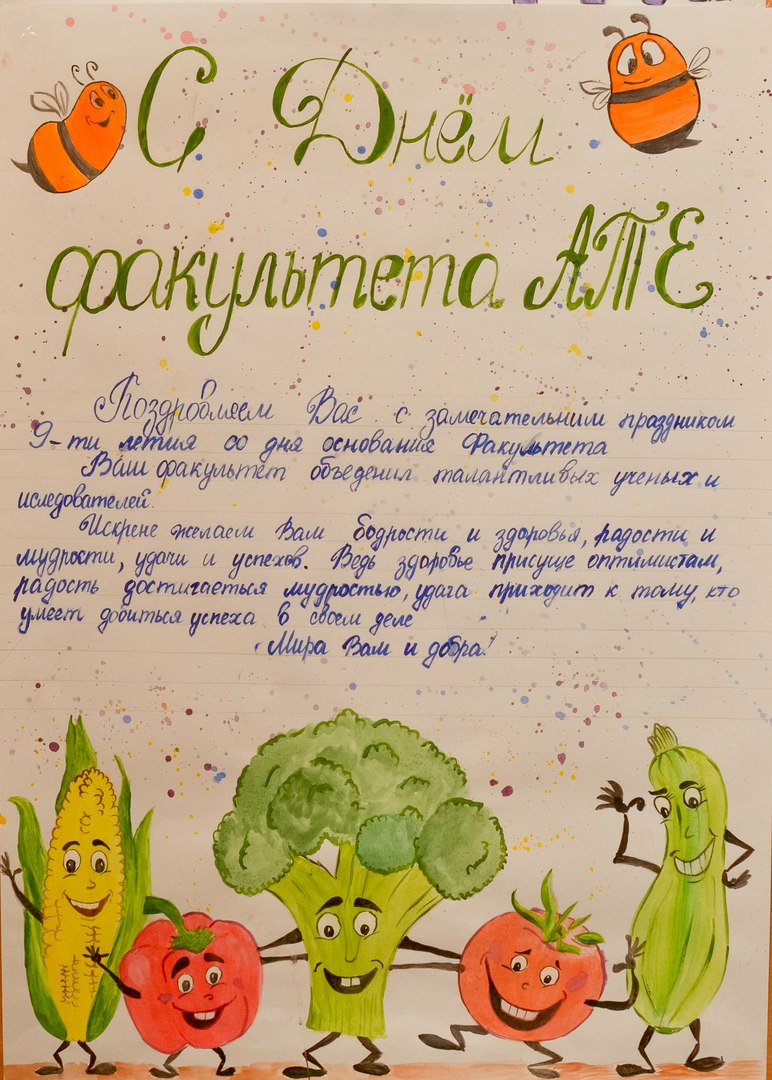 С Днём
факультета АТЕ
Поздравляем Вас с замечательним праздником
9-ти летия со дня основания Факультета
Ваш факультет объеденил талантливых ученых и
иследователей.
Искрене желаем Вам бодрости и здоровья, радости и
мудрости, удачи и успехов. Ведь здоровье присуще оптимистам,
радость достигаеться мудростью, удача приходит к тому, кто
умеет добиться успеха в своем деле
Мира Вам и добра!